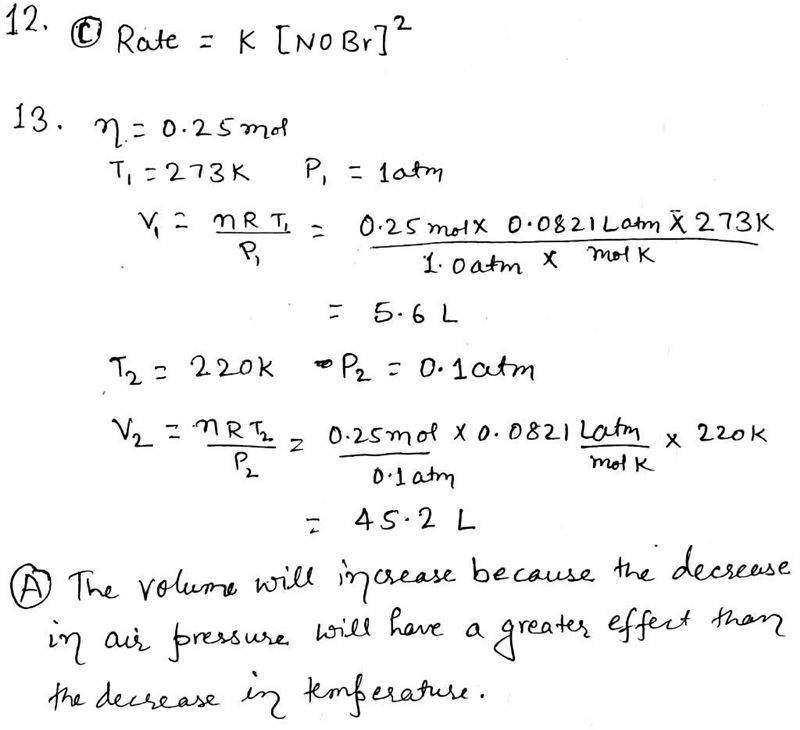 12. Ⓒ Rate = K [NOBr]²
13. n = 0.25 mol
T₁ = 273K P₁ = 1atm
V₁ = nRT₁/P₁ = 0.25 mol x 0.0821 L atm x 273K / 1.0 atm x mol K
= 5.6 L
T₂ = 220K P₂ = 0.1atm
V₂ = nRT₂/P₂ = 0.25mol/0.1 atm x 0.0821 L atm/mol K x 220K
= 45.2 L
Ⓐ The volume will increase because the decrease
in air pressure will have a greater effect than
the decrease in temperature.